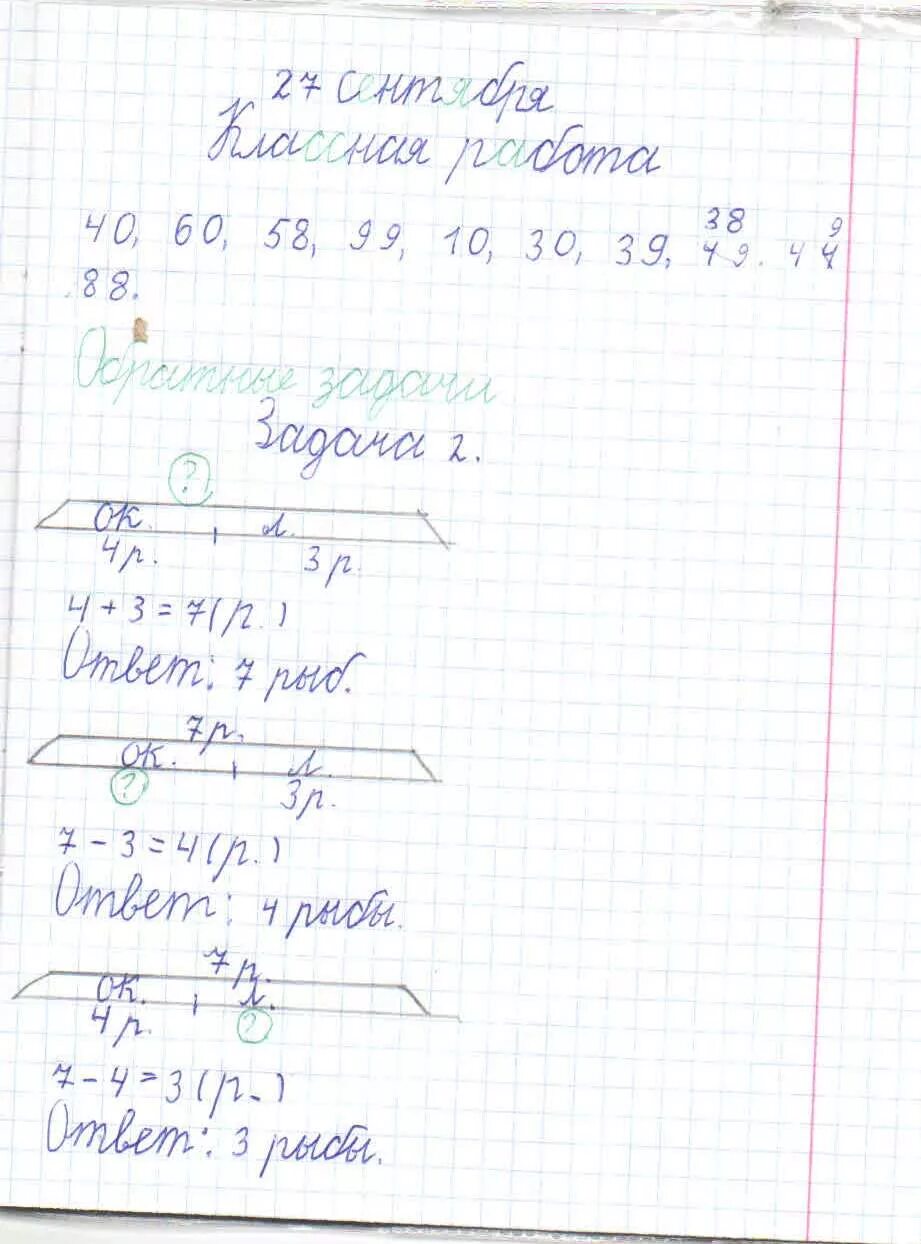 27 сентября
Классная работа
38 9
40, 60, 58, 99, 10, 30, 39, 49. 44
88.
Обратные задачи
Задача 2.
?
ок. л.
4р. 3 р.
4 + 3 = 7 (р.)
Ответ: 7 рыб.
7р.
ок. л.
? 3р.
7 - 3 = 4 (р.)
Ответ: 4 рыбы.
7 р.
ок. л.
4 р. ?
7 - 4 = 3 (р.)
Ответ: 3 рыбы.